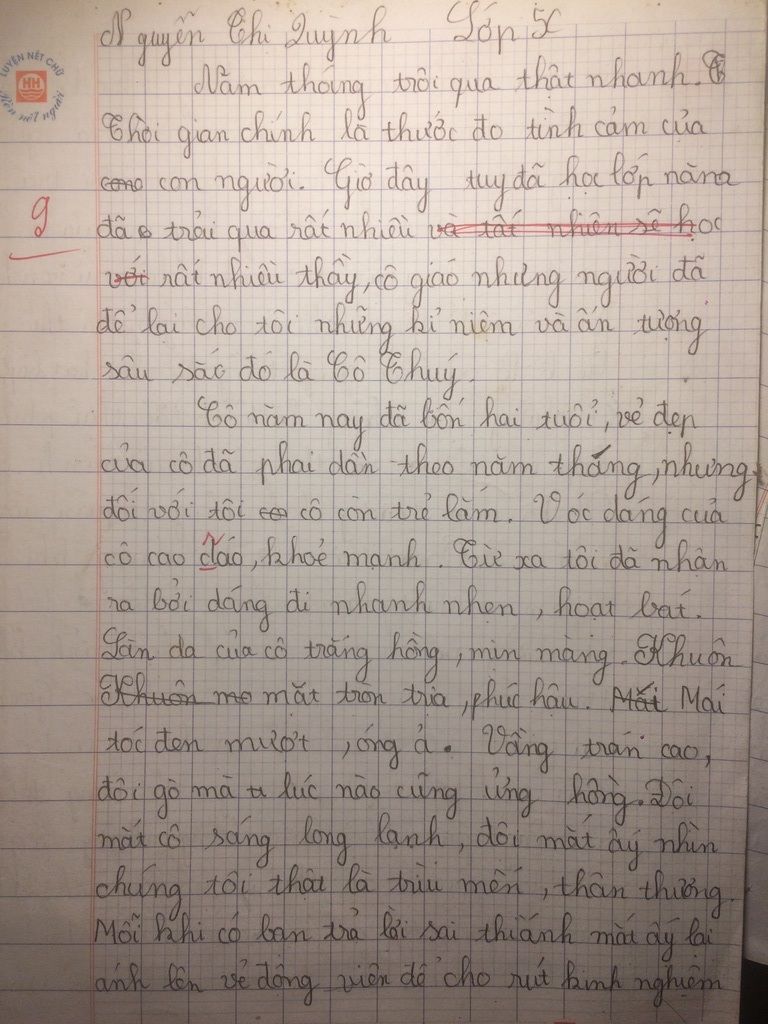 Nguyễn Thị Quỳnh Lớp 5C
LUYỆN NÉT CHỮ
HH
Rèn nết người
Năm tháng trôi qua thật nhanh. T
Thời gian chính là thước đo tình cảm của
cono con người. Giờ đây tuy đã học lớp năm
9
đã trải qua rất nhiều và tất nhiên sẽ học
với rất nhiều thầy, cô giáo nhưng người đã
để lại cho tôi những kỉ niệm và ấn tượng
sâu sắc đó là Cô Thuý.
Cô năm nay đã bốn hai tuổi, vẻ đẹp
của cô đã phai dần theo năm tháng, nhưng
đối với tôi cô còn trẻ lắm. Vóc dáng của
cô cao dáo, khoẻ mạnh. Từ xa tôi đã nhận
ra bởi dáng đi nhanh nhẹn, hoạt bát.
Làn da của cô trắng hồng, mịn màng. Khuôn
Khuôn mo mặt tròn trịa, phúc hậu. Mắt Mái
tóc đen mượt, óng ả. Vầng trán cao,
đôi gò má lúc nào cũng ửng hồng. Đôi
mắt cô sáng long lanh, đôi mắt ấy nhìn
chúng tôi thật là trìu mến, thân thương.
Mỗi khi có bạn trả lời sai thì ánh mắt ấy lại
ánh lên vẻ động viên để cho rút kinh nghiệm